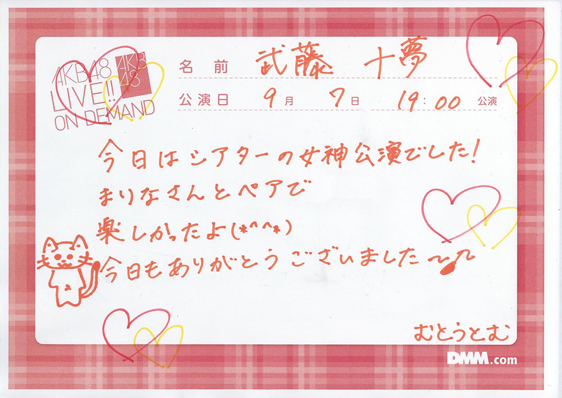 AKB48
LIVE!!
ON DEMAND
AKB
48
名前 武藤 十夢
公演日 9月 7日 19:00 公演
今日はシアターの女神公演でした!
まりなさんとペアで
楽しかったよ(*^^*)
今日もありがとうございました〜♪
むとうとむ
DMM.com